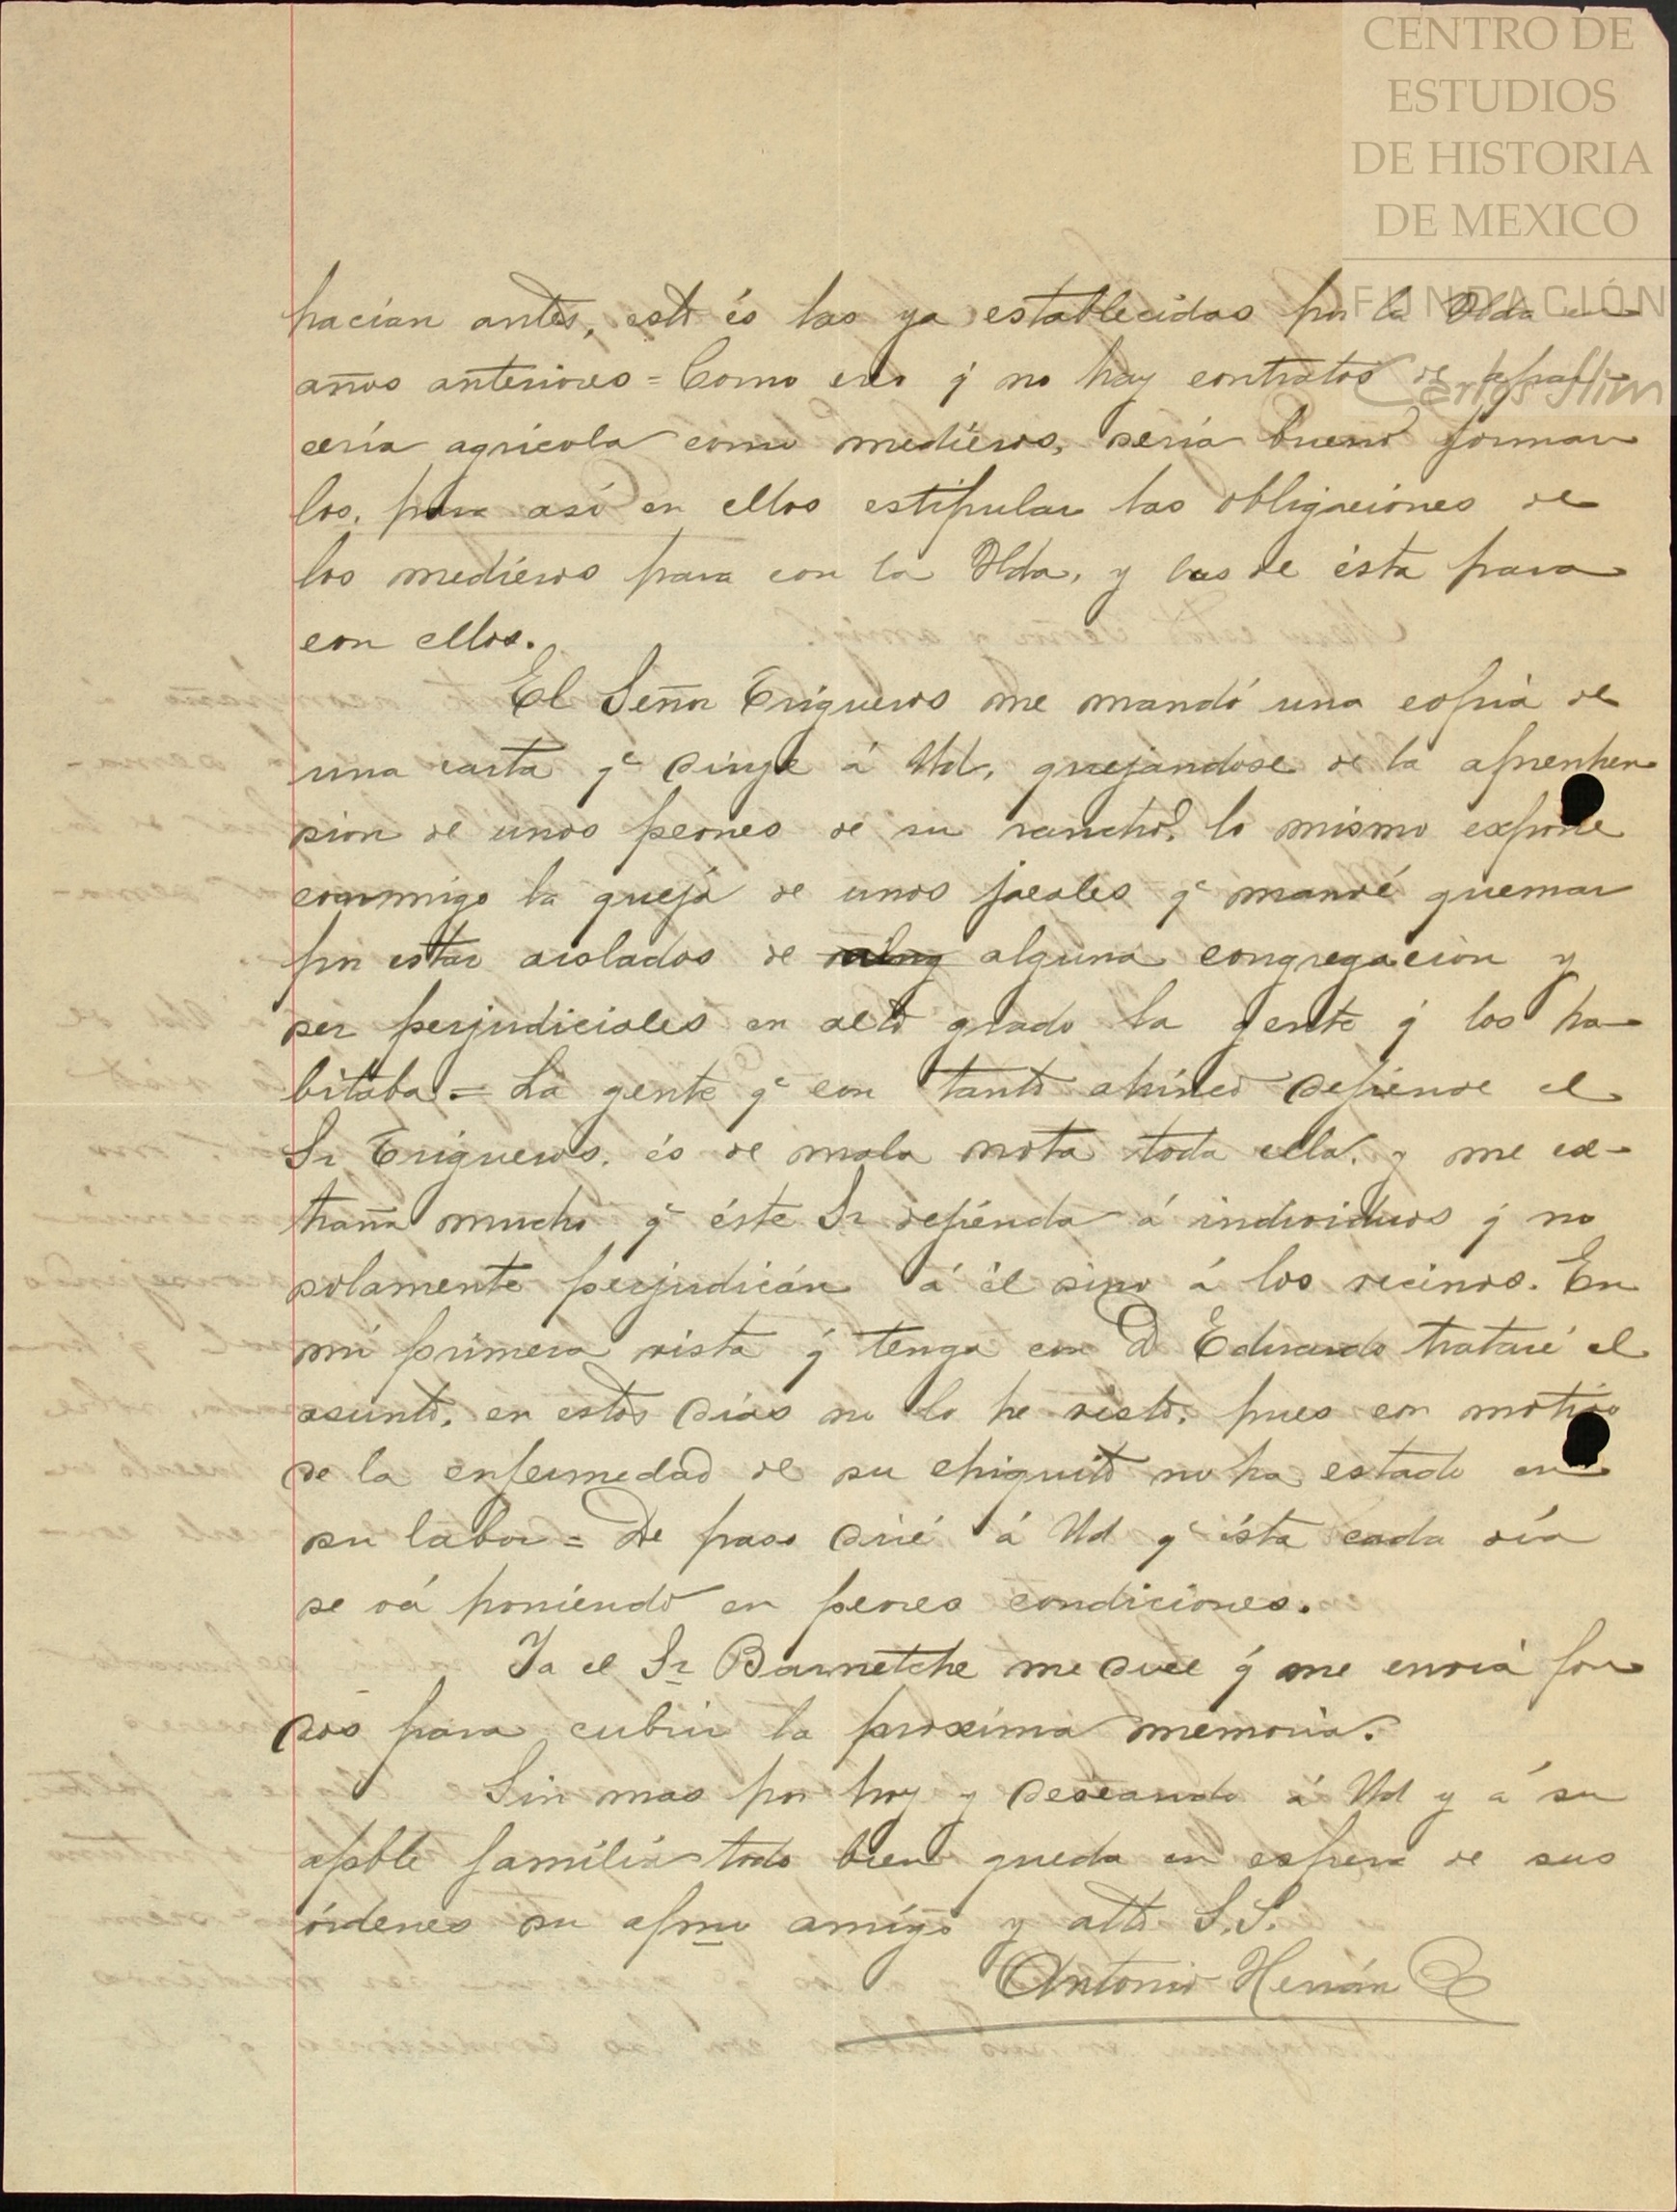 CENTRO DE
ESTUDIOS
DE HISTORIA
DE MEXICO
FUNDACIÓN
Carlos Slim
hacían antes, esto és las ya establecidas por la Hda en
años anteriores = Como creo q no hay contratos de apar-
cería agrícola como medieros, sería bueno formar
los, para así en ellos estipular las obligaciones de
los medieros para con la Hda, y las de ésta para
con ellos.
El Señor Trigueros me mandó una copia de
una carta qe dirije á Ud, quejandose de la aprenhen
sion de unos peones de su rancho, lo mismo expone
conmmigo la queja de unos jacales qe mandé quemar
por estar aislados de alguna congregacion y
ser perjudiciales en alto grado la gente q los ha-
bitaba = La gente qe con tanto ahinco defiende el
Sr Trigueros, és de mala nota toda ella, y me ex-
traña mucho qe éste Sr defiénda á individuos q no
solamente perjudicán á él sino á los vecinos. En
mi primera vista q tenga con D Eduardo trataré el
asunto, en estos dias no lo he visto, pues con motivo
de la enfermedad de su chiquito no ha estado en
su labor = De paso diré á Ud qe ésta cada día
se vá poniendo en peores condiciones.
Ya el Sr Barnetche me dice q me envia fon
dos para cubrir la proxima memoria.
Sin mas por hoy y deseando á Ud y á su
apble familia todo bien queda en espera de sus
órdenes su afmo amigo y atto S.S.
Antonio Hernán